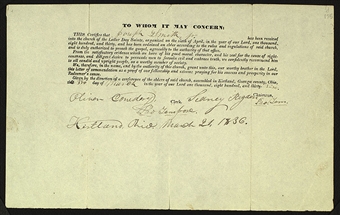 TO WHOM IT MAY CONCERN:
THIS Certifies that Joseph Smith Jr. has been received
into the church of the Latter Day Saints, organized on the sixth of April, in the year of our Lord, one thousand,
eight hundred, and thirty, and has been ordained an elder according to the rules and regulations of said church,
and is duly authorized to preach the gospel, agreeably to the authority of that office.
From the satisfactory evidence which we have of his good moral character, and his zeal for the cause of righteousness, and diligent desire to persuade men to forsake evil and embrace truth, we confidently recommend him
to all candid and upright people, as a worthy member of society.
We, therefore, in the name, and by the authority of this church, grant unto this, our worthy brother in the Lord,
this letter of commendation as a proof of our fellowship and esteem: praying for his success and prosperity in our
Redeemer's cause.
Given by the direction of a conference of the elders of said church, assembled in Kirtland, Geauga county, Ohio,
the day of March in the year of our Lord one thousand, eight hundred, and thirty
Sidney Rigdon Chairman.
Oliver Cowdery Clerk
Kirtland Ohio March 21 1836.